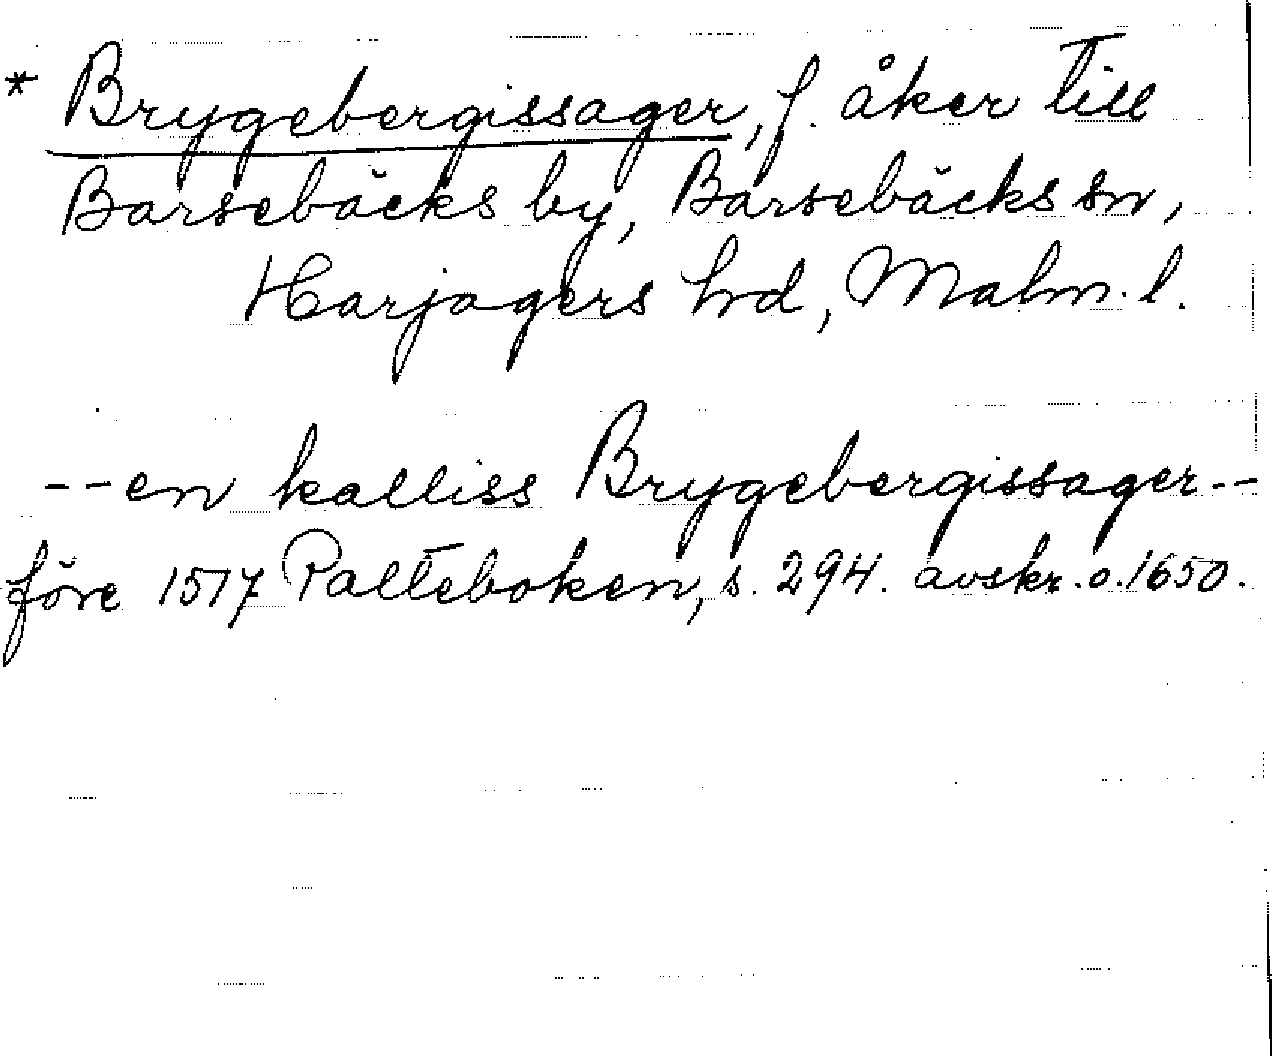 * Brygebergissager, f. åker till
Barsebäcks by, Barsebäcks sn,
Harjagers hrd, Malm. l.
--en kalliss Brygebergissager--
före 1517 Palteboken, s. 294. avskr. o. 1650.